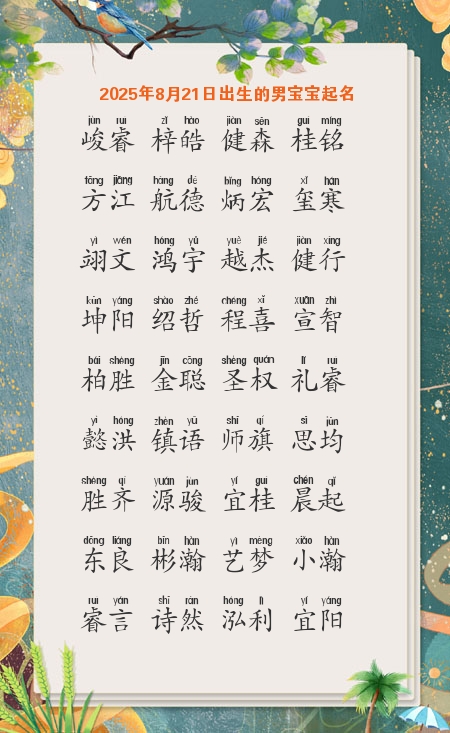 2025年8月21日出生的男宝宝起名
jùn ruì zǐ hào jiàn sēn guì míng
峻睿 梓皓 健森 桂铭
fāng jiāng háng dé bǐng hóng xǐ hán
方江 航德 炳宏 玺寒
yì wén hóng yǔ yuè jié jiàn xíng
翊文 鸿宇 越杰 健行
kūn yáng shào zhé chéng xǐ xuān zhì
坤阳 绍哲 程喜 宣智
bǎi shèng jīn cōng shèng quán lǐ ruì
柏胜 金聪 圣权 礼睿
yì hóng zhèn yǔ shī qí sī jūn
懿洪 镇语 师旗 思均
shèng qí yuán jùn yí guì chén qǐ
胜齐 源骏 宜桂 晨起
dōng liáng bīn hàn yì mèng xiǎo hàn
东良 彬瀚 艺梦 小瀚
ruì yán shī rán hóng lì yí yáng
睿言 诗然 泓利 宜阳